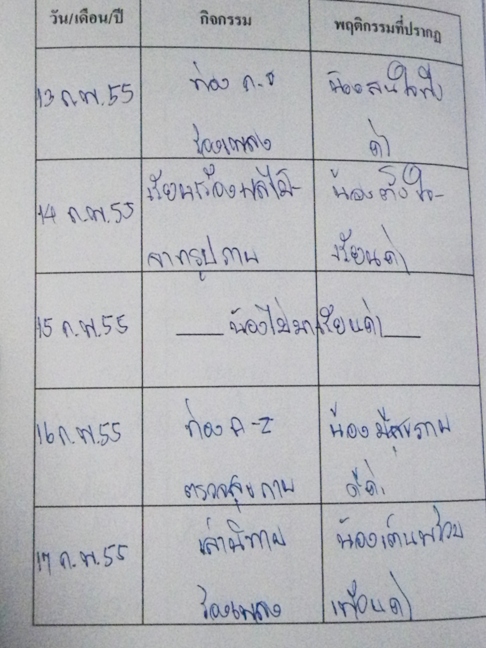 วัน/เดือน/ปี กิจกรรม พฤติกรรมที่ปรากฏ
13 ก.พ. 55 ท่อง ก-ฮ น้องสนใจดี
ร้องเพลง ค่ะ
14 ก.พ. 55 เรียนเรื่องผลไม้ น้องตั้งใจ-
จากรูปภาพ เรียนค่ะ
15 ก.พ. 55 น้องไม่มาเรียนค่ะ
16 ก.พ. 55 ท่อง A-Z น้องมีสุขภาพ
ตรวจสุขภาพ ดีค่ะ
17 ก.พ. 55 เล่านิทาน น้องเต้นพร้อม
ร้องเพลง เพื่อนค่ะ